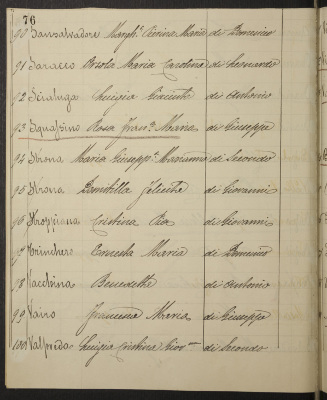 76
90 Sansalvadore Margh. Cerina Maria di Domenico
91 Saracco Orsola Maria Carolina di Leonardo
92 Scialuga Luigia Giacinta di Antonio
93 Squassino Rosa Franca Maria di Giuseppe
94 Strona Maria Giuseppa Marianna di Secondo
95 Strona Domitilla Felicita di Giovanni
96 Stroppiana Cristina Pia di Giovanni
97 Trinchero Ernesta Maria di Domenico
98 Vacchina Benedetta di Antonio
99 Vairo Francesca Maria di Giuseppe
100 Valpreda Luigia Cristina di Secondo